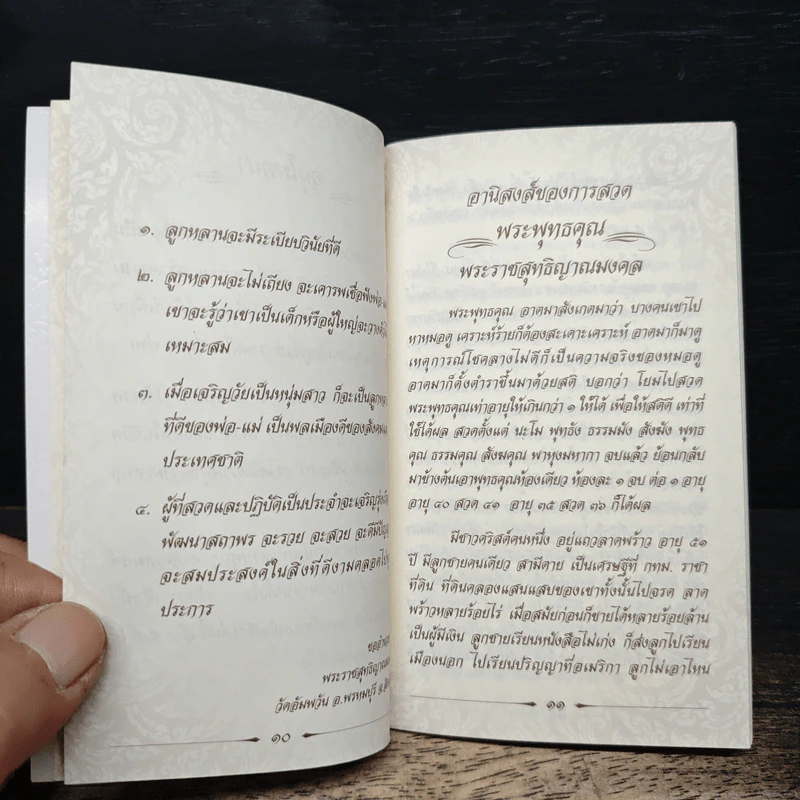 ๑. ลูกหลานจะมีระเบียบวินัยที่ดี
๒. ลูกหลานจะไม่เถียง จะเคารพเชื่อฟังพ่อ
เขาจะรู้ว่าเขาเป็นเด็กหรือผู้ใหญ่จะวางตัว
เหมาะสม
๓. เมื่อเจริญวัยเป็นหนุ่มสาว ก็จะเป็นลูก
ที่ดีของพ่อ-แม่ เป็นพลเมืองดีของสังคม
ประเทศชาติ
๔. ผู้ที่สวดและปฏิบัติเป็นประจำจะเจริญ
พัฒนาสถาพร จะรวย จะสวย จะดีมี
จะสมประสงค์ในสิ่งที่ดีงามตลอดไป
ประการ
พระราชสุทธิญาณ
วัดอัมพวัน อ.พรหมบุรี จ.
๑๐
อานิสงส์ของการสวด
พระพุทธคุณ
พระราชสุทธิญาณมงคล
พระพุทธคุณ อาตมาสังเกตมาว่า บางคนเขาไป
หาหมอดู เคราะห์ร้ายก็ต้องสะเดาะเคราะห์ อาตมาก็มาดู
เหตุการณ์โชคลางไม่ดีก็เป็นความจริงของหมอดู
อาตมาก็ตั้งตำราขึ้นมาด้วยสติ บอกว่า โยมไปสวด
พระพุทธคุณเท่าอายุให้เกินกว่า ๑ ให้ได้ เพื่อให้สติดี เท่าที่
ใช้ได้ผล สวดตั้งแต่ นะโม พุทธัง ธรรมมัง สังฆัง พุทธ
คุณ ธรรมคุณ สังฆคุณ พาหุงมหากา จบแล้ว ย้อนกลับ
มาข้างต้นเอาพุทธคุณห้องเดียว ห้องละ ๑ จบ ต่อ ๑ อายุ
อายุ ๔๐ สวด ๔๑ อายุ ๓๕ สวด ๓๖ ก็ได้ผล
มีชาวคริสต์คนหนึ่ง อยู่แถวลาดพร้าว อายุ ๕๑
ปี มีลูกชายคนเดียว สามีตาย เป็นเศรษฐีที่ กทม. ราชา
ที่ดิน ที่ดินคลองแสนแสบของเขาทั้งนั้นไปจรด ลาด
พร้าวหลายร้อยไร่ เมื่อสมัยก่อนก็ขายได้หลายร้อยล้าน
เป็นผู้มีเงิน ลูกชายเรียนหนังสือไม่เก่ง ก็ส่งลูกไปเรียน
เมืองนอก ไปเรียนปริญญาที่อเมริกา ลูกไม่เอาไหน
๑๑